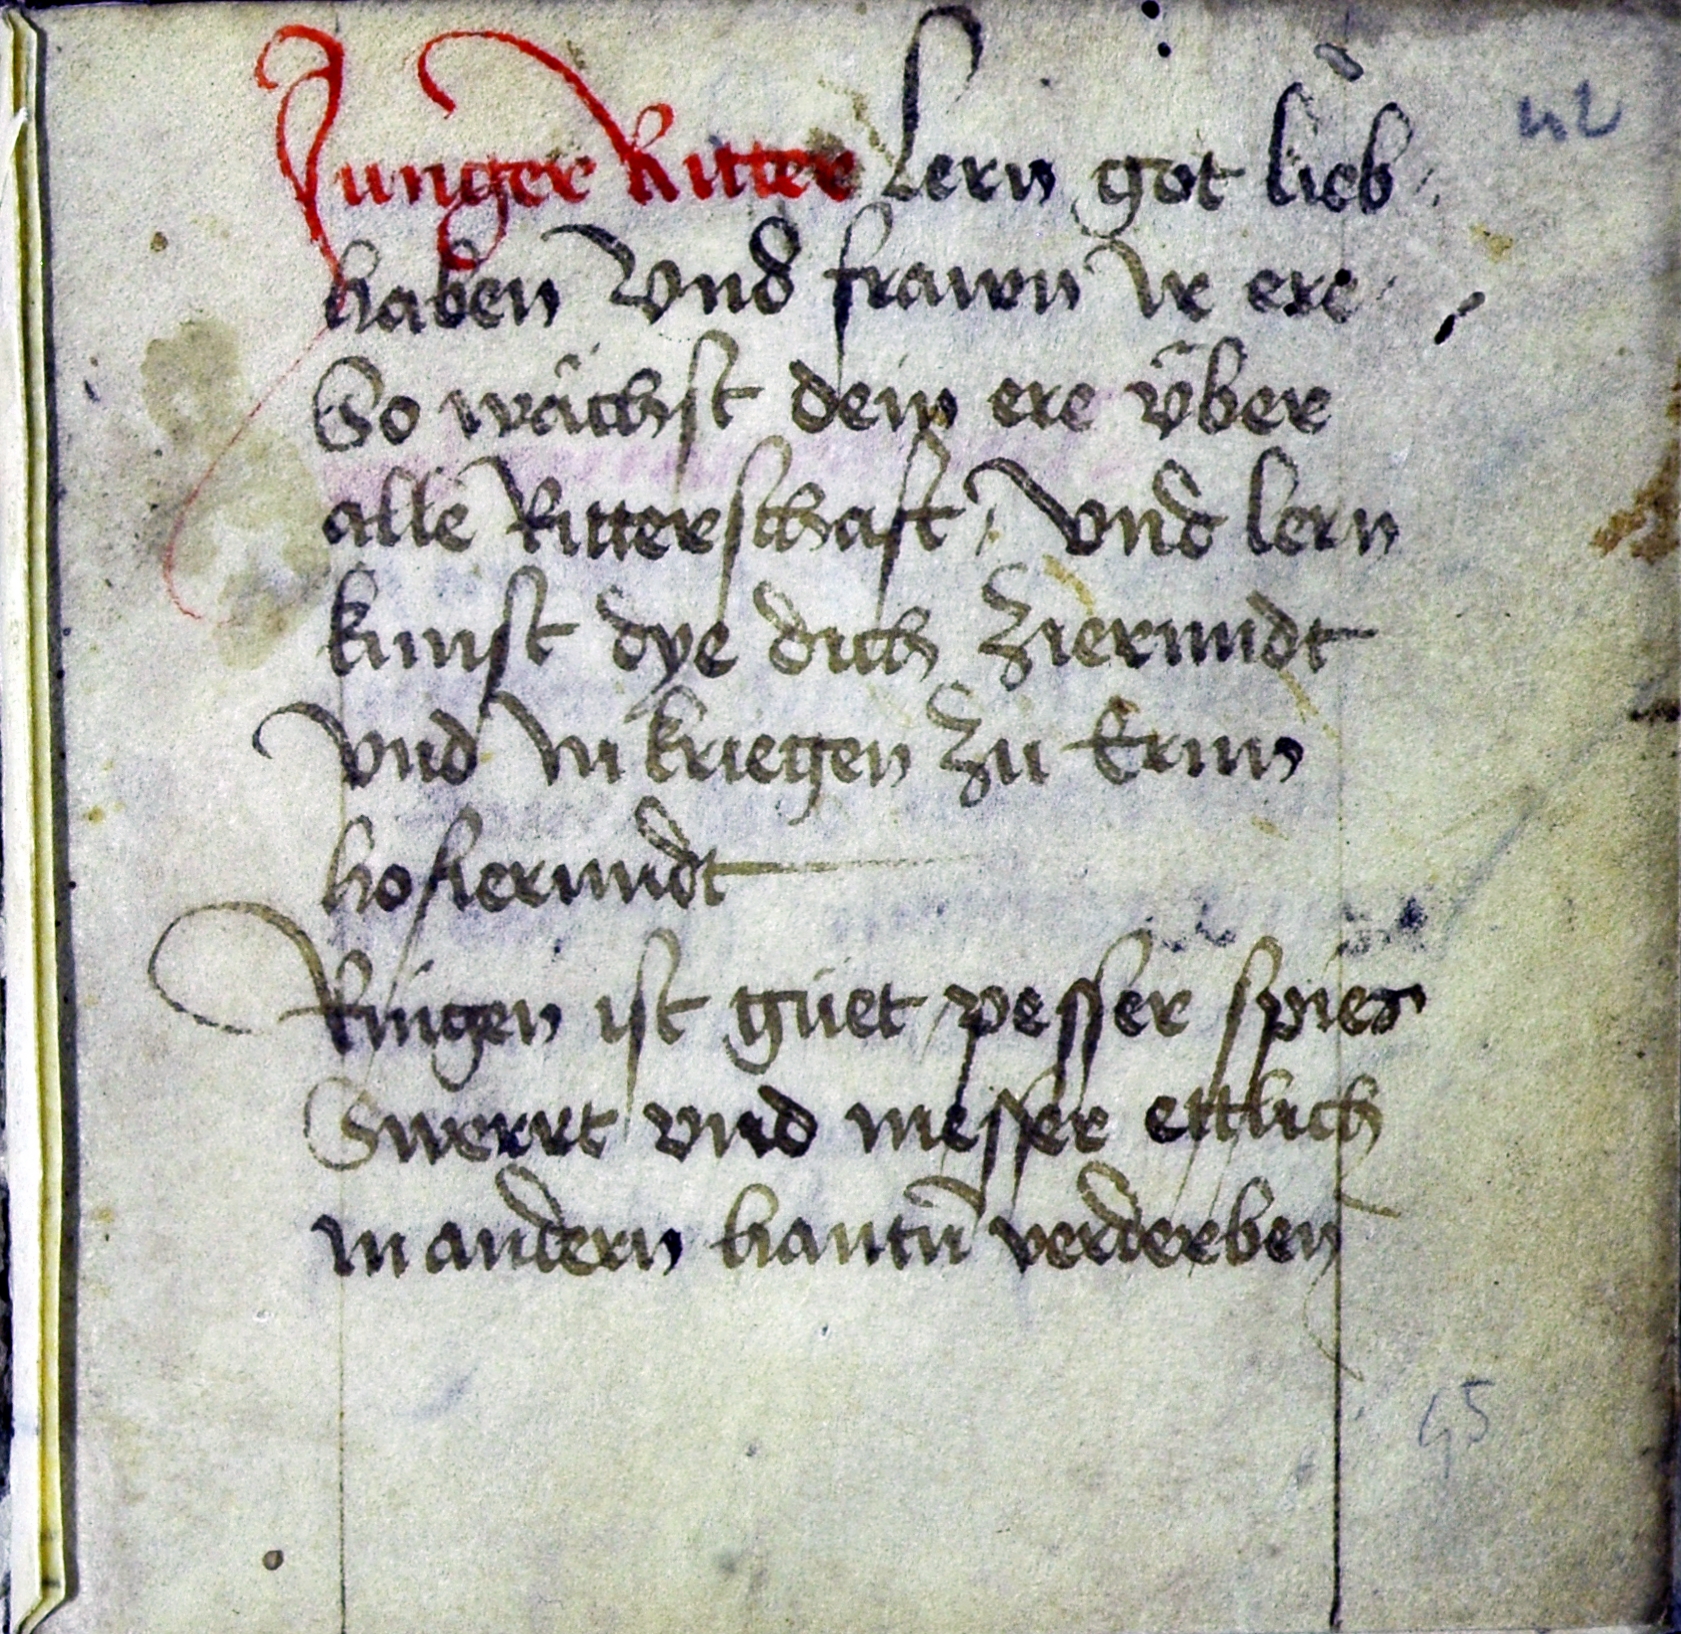 42
Junger Ritter lern got lieb
haben vnd frawn Ir ere
So wächst dein ere vber
alle Ritterschaft / vnd lern
kunst dye dich Zierundt
vnd In kriegen Zu Ernn
hofierundt
Ringen ist güet pesser spies
Swerrt vnd messer ettlich
In andern hantñ verderben
45